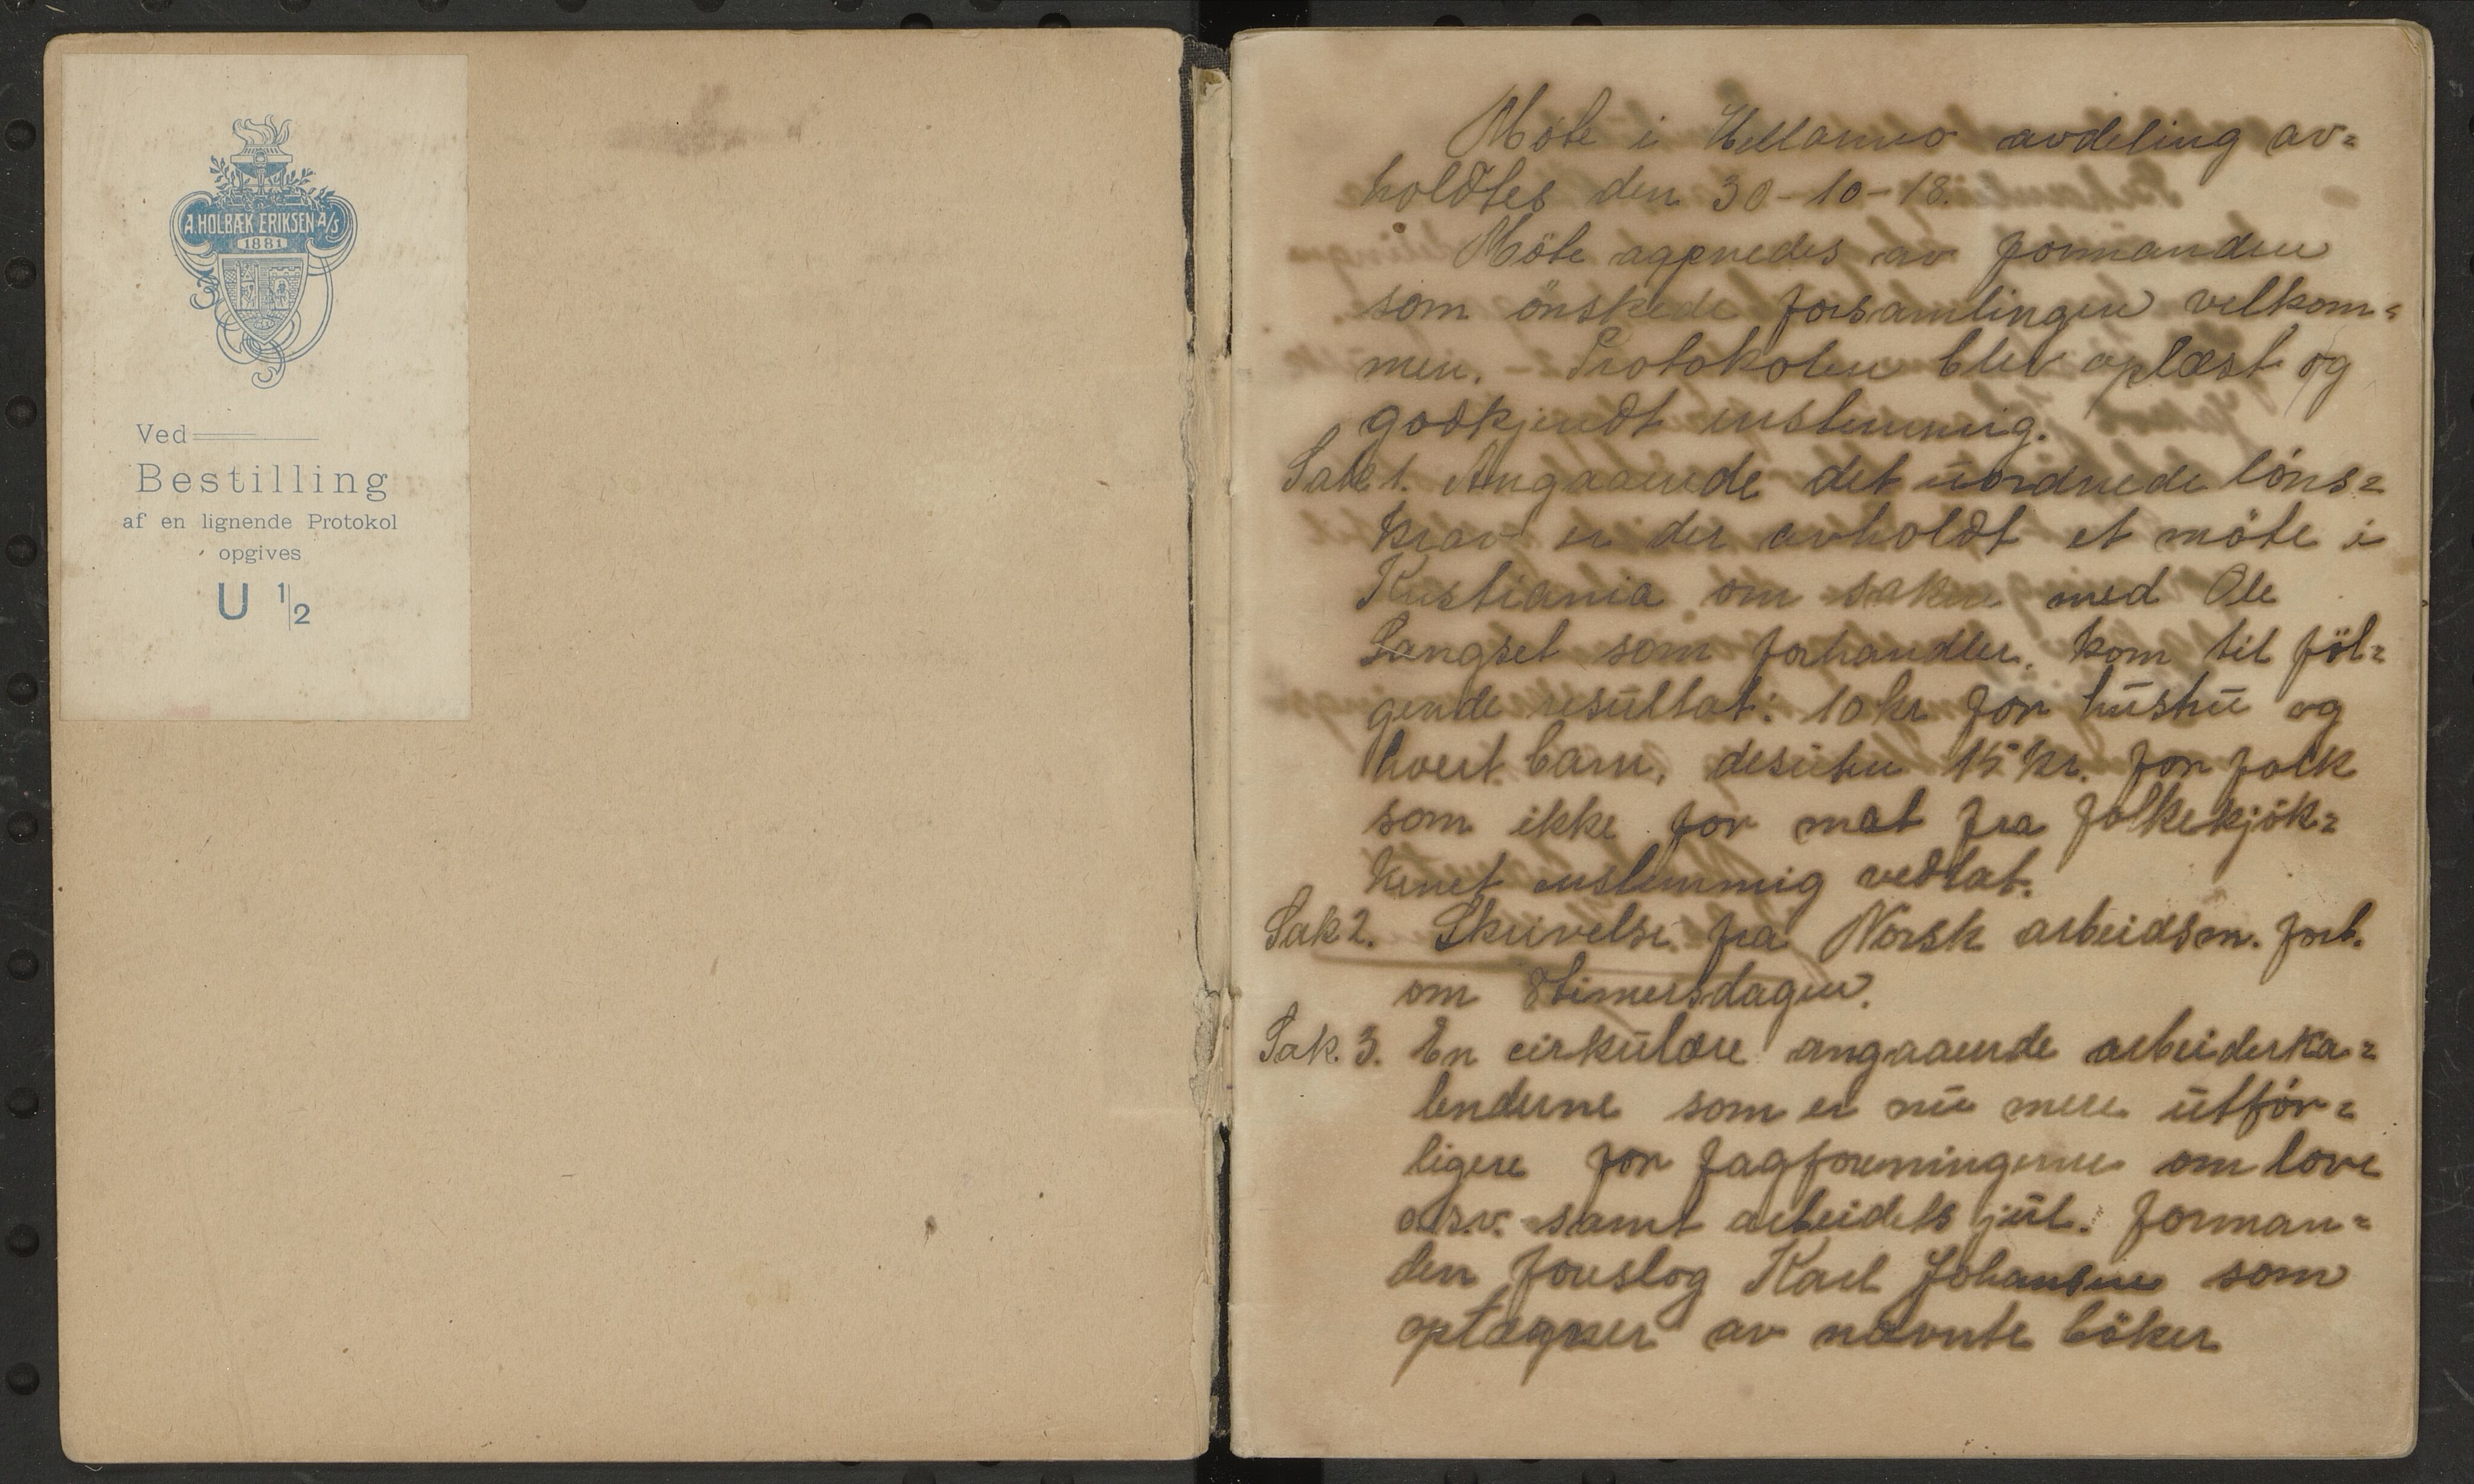 A. HOLBÆK ERIKSEN A/S
1881
Ved
Bestilling
af en lignende Protokol
opgives
U 1/2
Möte i Hellarmo avdeling av=
holdtes den 30-10-18.
Möte aapnedes av formanden
som önskede forsamlingen velkom=
men. - Protokolen blev oplæst og
godkjendt enstemmig.
Sak 1. Angaaende det uordnede löns=
krav er der avholdt et möte i
Kristiania om saken med Ole
Langset som forhandler, kom til föl=
gende resultat: 10 kr for hustru og
hvert barn, desuten 15 kr. for folk
som ikke for mat fra folkekjök=
kenet enstemmig vedtat.
Sak 2. Skrivelse fra Norsk arbeidsm. forb.
om 8timersdagen.
Sak. 3. En cirkulære angaaende arbeiderka=
lenderne som er nu mere utför=
ligere for fagforeningerne om love
o.s.v. samt arbeidets jul. Forman=
den foreslog Karl Johansen som
optegner av nævnte böker